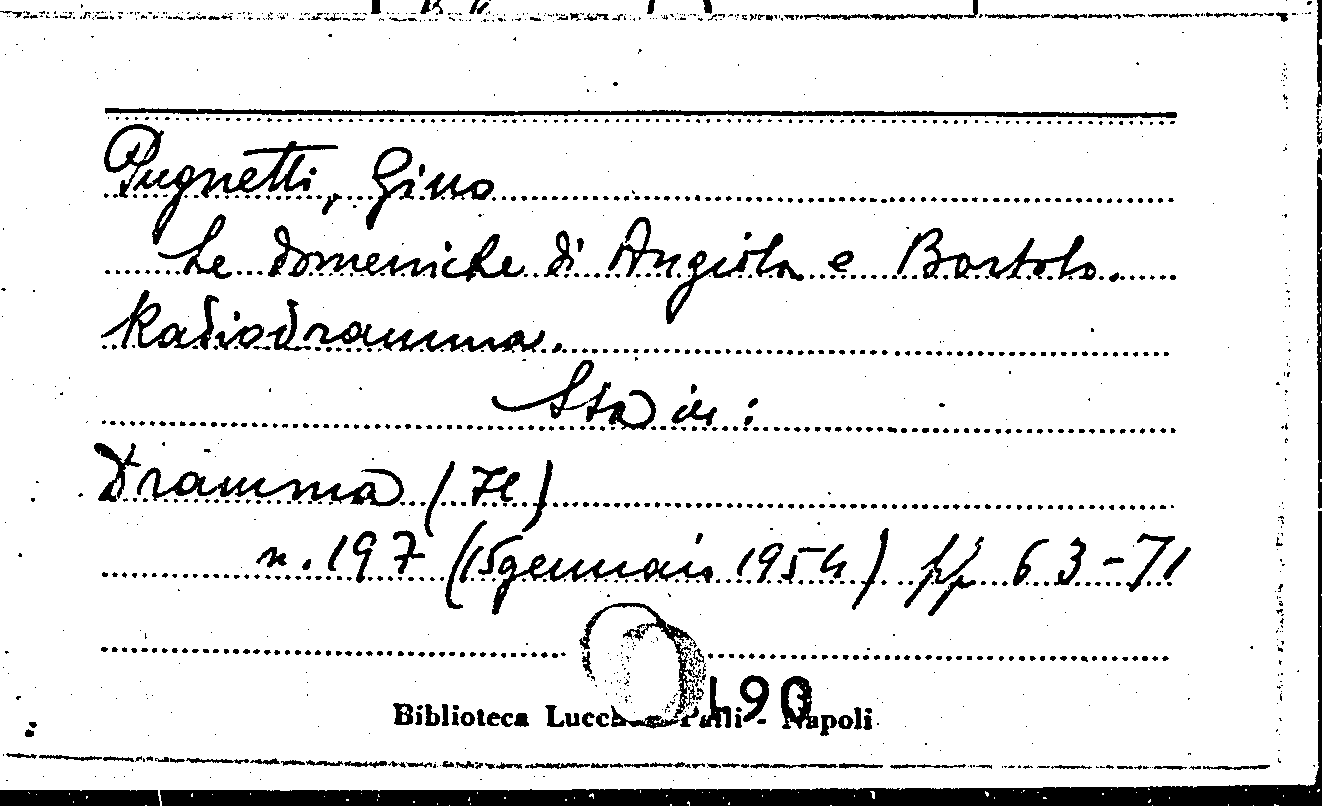 Pugnetti, Gino
Le domeniche di Angiola e Bortolo.
Radiodramma.
Sta in:
Dramma (Il)
n. 197 (15 gennaio 1954) pp 63-71
190
Biblioteca Lucchesi Palli - Napoli